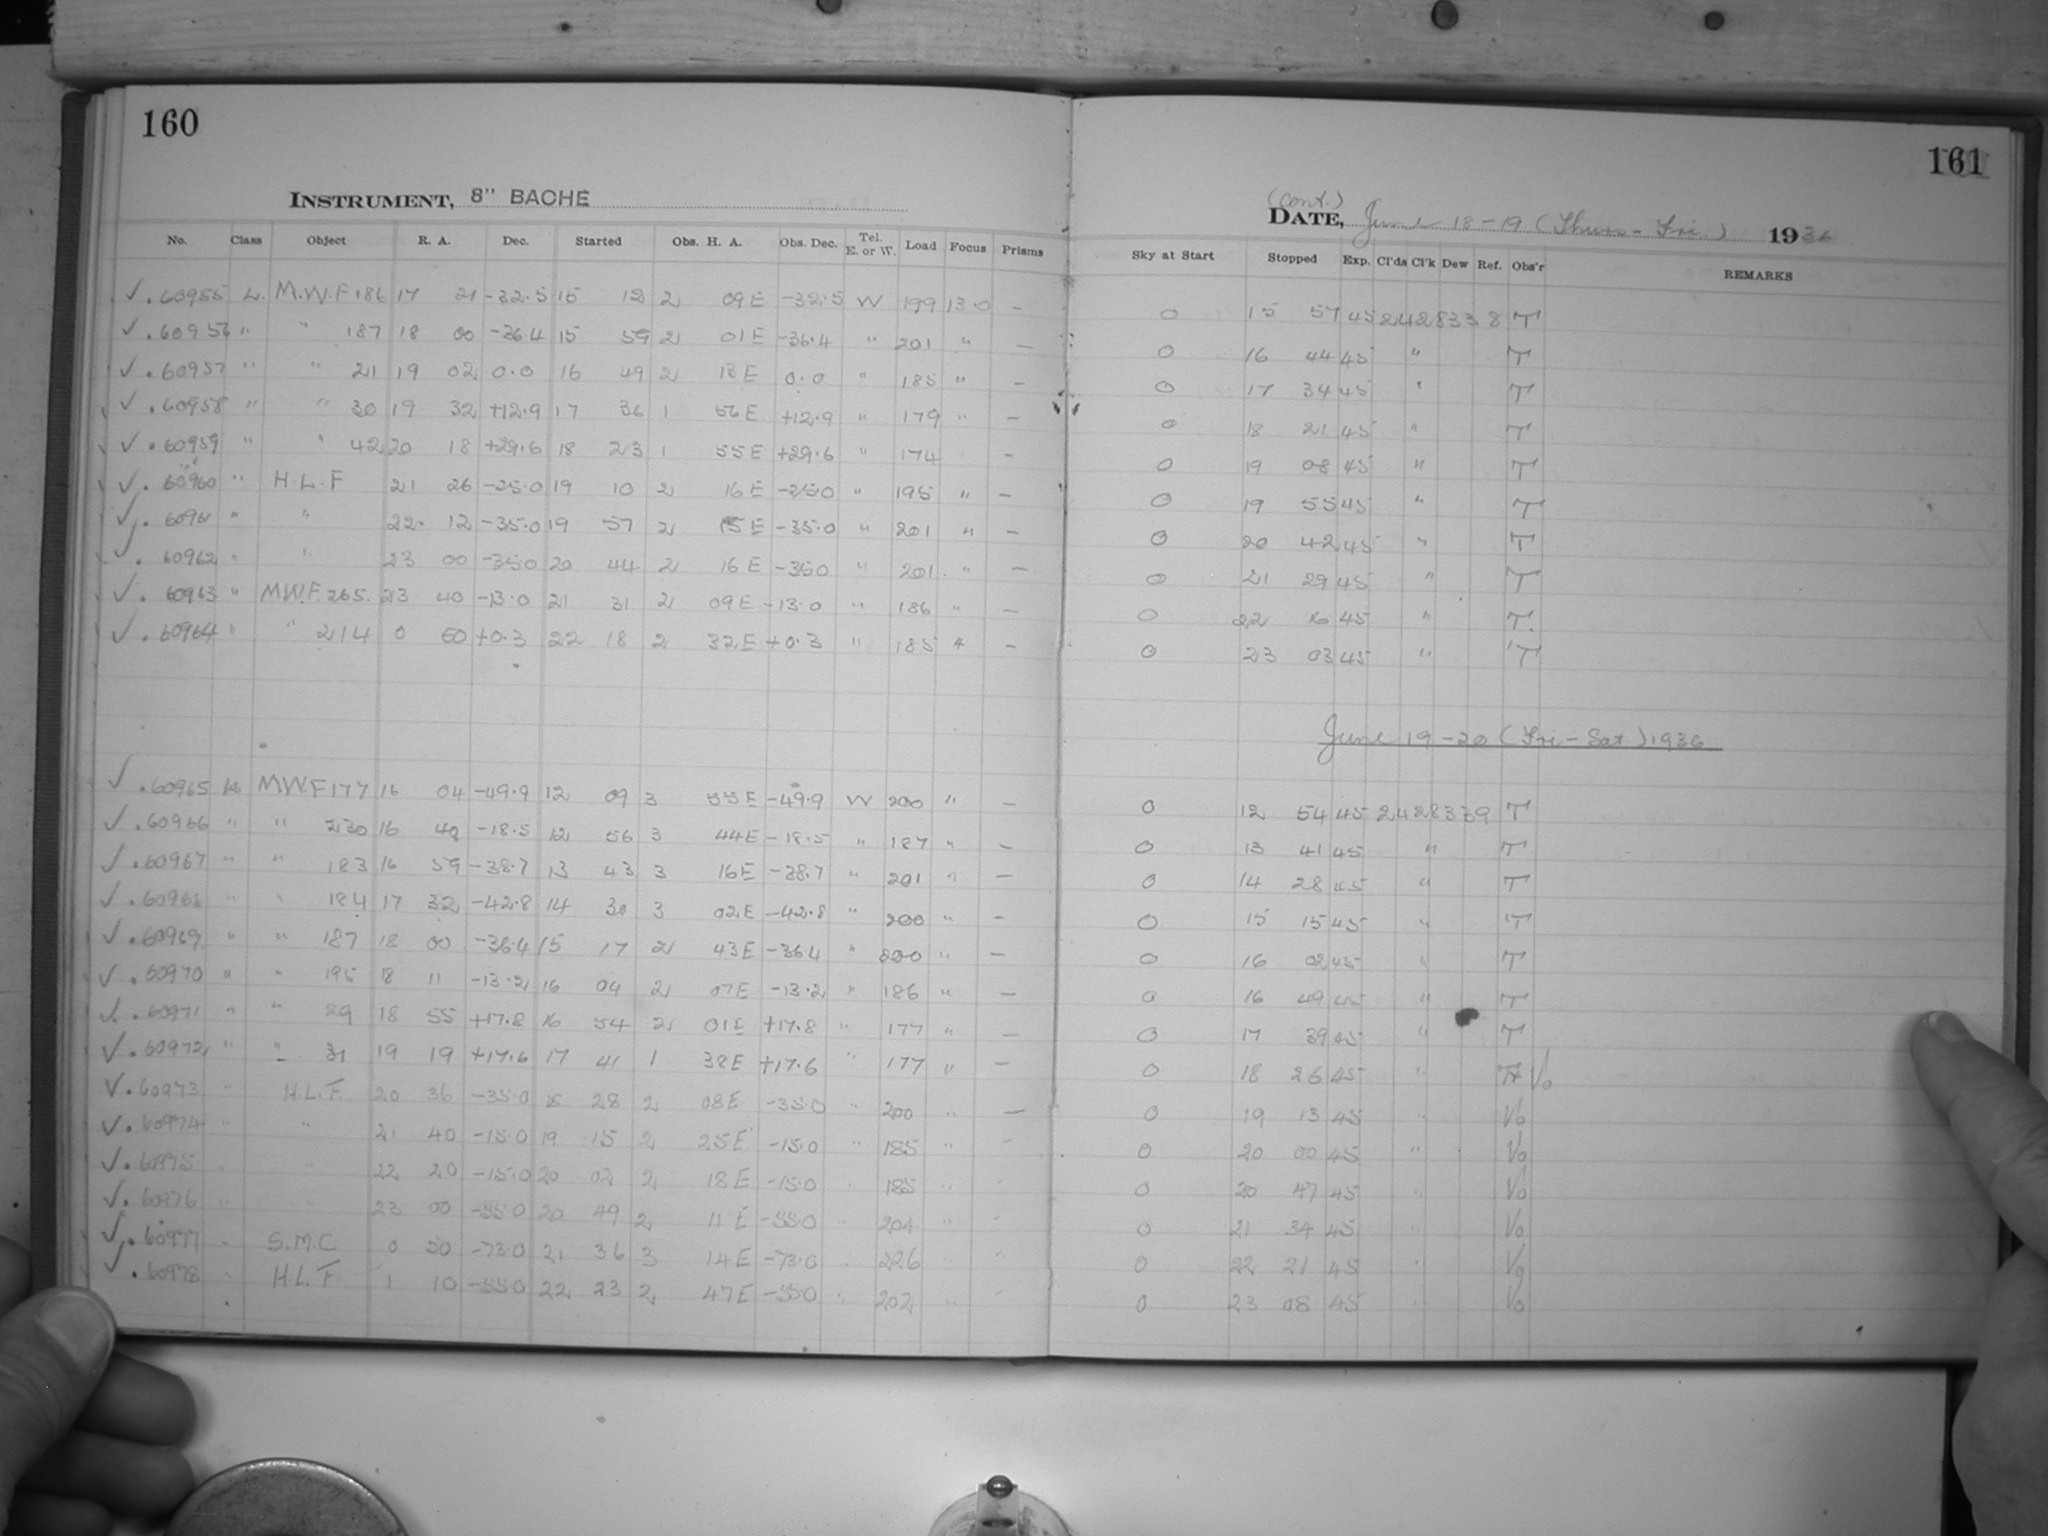 160
INSTRUMENT, 8" BACHE
No. Class Object R. A. Dec. Started Obs. H. A. Obs. Dec. Tel. E. or W. Load Focus Prisms
√ . 60955 L. M.W.F 186 17 21 -32.5 15 12 2 09 E -32.5 W 199 13.0 -
√ . 60956 " " 187 18 00 -36.4 15 59 2 01 E -36.4 " 201 " -
√ . 60957 " " 21 19 02 0.0 16 49 2 13 E 0.0 " 185 " -
√ . 60958 " " 30 19 32 +12.9 17 36 1 56 E +12.9 " 179 " -
√ . 60959 " " 42 20 18 +29.6 18 23 1 55 E +29.6 " 174 -
√ . 60960 " H.L.F 21 26 -25.0 19 10 2 16 E -25.0 " 195 " -
√ . 60961 " " 22 12 -35.0 19 57 2 15 E -35.0 " 201 " -
√ . 60962 " " 23 00 -35.0 20 44 2 16 E -35.0 " 201 " -
√ . 60963 " M.W.F. 265. 23 40 -13.0 21 31 2 09 E -13.0 " 186 " -
√ . 60964 " " 214 0 50 +0.3 22 18 2 32 E +0.3 " 185 " -
√ . 60965 L M.W.F 177 16 04 -49.9 12 09 3 55 E -49.9 W 200 " -
√ . 60966 " " 230 16 40 -18.5 12 56 3 44 E -18.5 " 187 " -
√ . 60967 " " 183 16 59 -38.7 13 43 3 16 E -38.7 " 201 " -
√ . 60968 " " 184 17 32 -42.8 14 30 3 02 E -42.8 " 200 " -
√ . 60969 " " 187 18 00 -36.4 15 17 2 43 E -36.4 " 200 " -
√ . 60970 " " 195 18 11 -13.2 16 04 2 07 E -13.2 " 186 " -
√ . 60971 " " 29 18 55 +17.8 16 54 2 01 E +17.8 " 177 " -
√ . 60972 " " 31 19 19 +17.6 17 41 1 38 E +17.6 " 177 " -
√ . 60973 " H.L.F. 20 36 -35.0 18 28 2 08 E -35.0 " 200 " -
√ . 60974 " " 21 40 -15.0 19 15 2 25 E -15.0 " 185 " -
√ . 60975 " " 22 20 -15.0 20 02 2 18 E -15.0 " 185 " -
√ . 60976 " " 23 00 -55.0 20 49 2 11 E -55.0 " 204 " -
√ . 60977 " S.M.C 0 50 -73.0 21 36 3 14 E -73.0 " 226 " -
√ . 60978 " H.L.F. 1 10 -55.0 22 23 2 47 E -55.0 " 202 " -
161
(Cont.)
DATE, June 18-19 (Thurs-Fri.) 1936
Sky at Start Stopped Exp. Cl'ds Cl'k Dew Ref. Obs'r REMARKS
0 15 57 45 2428338 T
0 16 44 45 " T
0 17 34 45 " T
0 18 21 45 " T
0 19 08 45 " T
0 19 55 45 " T
0 20 42 45 " T
0 21 29 45 " T
0 22 16 45 " T.
0 23 03 45 " T
June 19-20 (Fri-Sat) 1936
0 12 54 45 2428339 T
0 13 41 45 " T
0 14 28 45 " T
0 15 15 45 " T
0 16 02 45 " T
0 16 49 45 " T
0 17 39 45 " T
0 18 26 45 " Vo
0 19 13 45 " Vo
0 20 00 45 " Vo
0 20 47 45 " Vo
0 21 34 45 " Vo
0 22 21 45 " Vo
0 23 08 45 " Vo